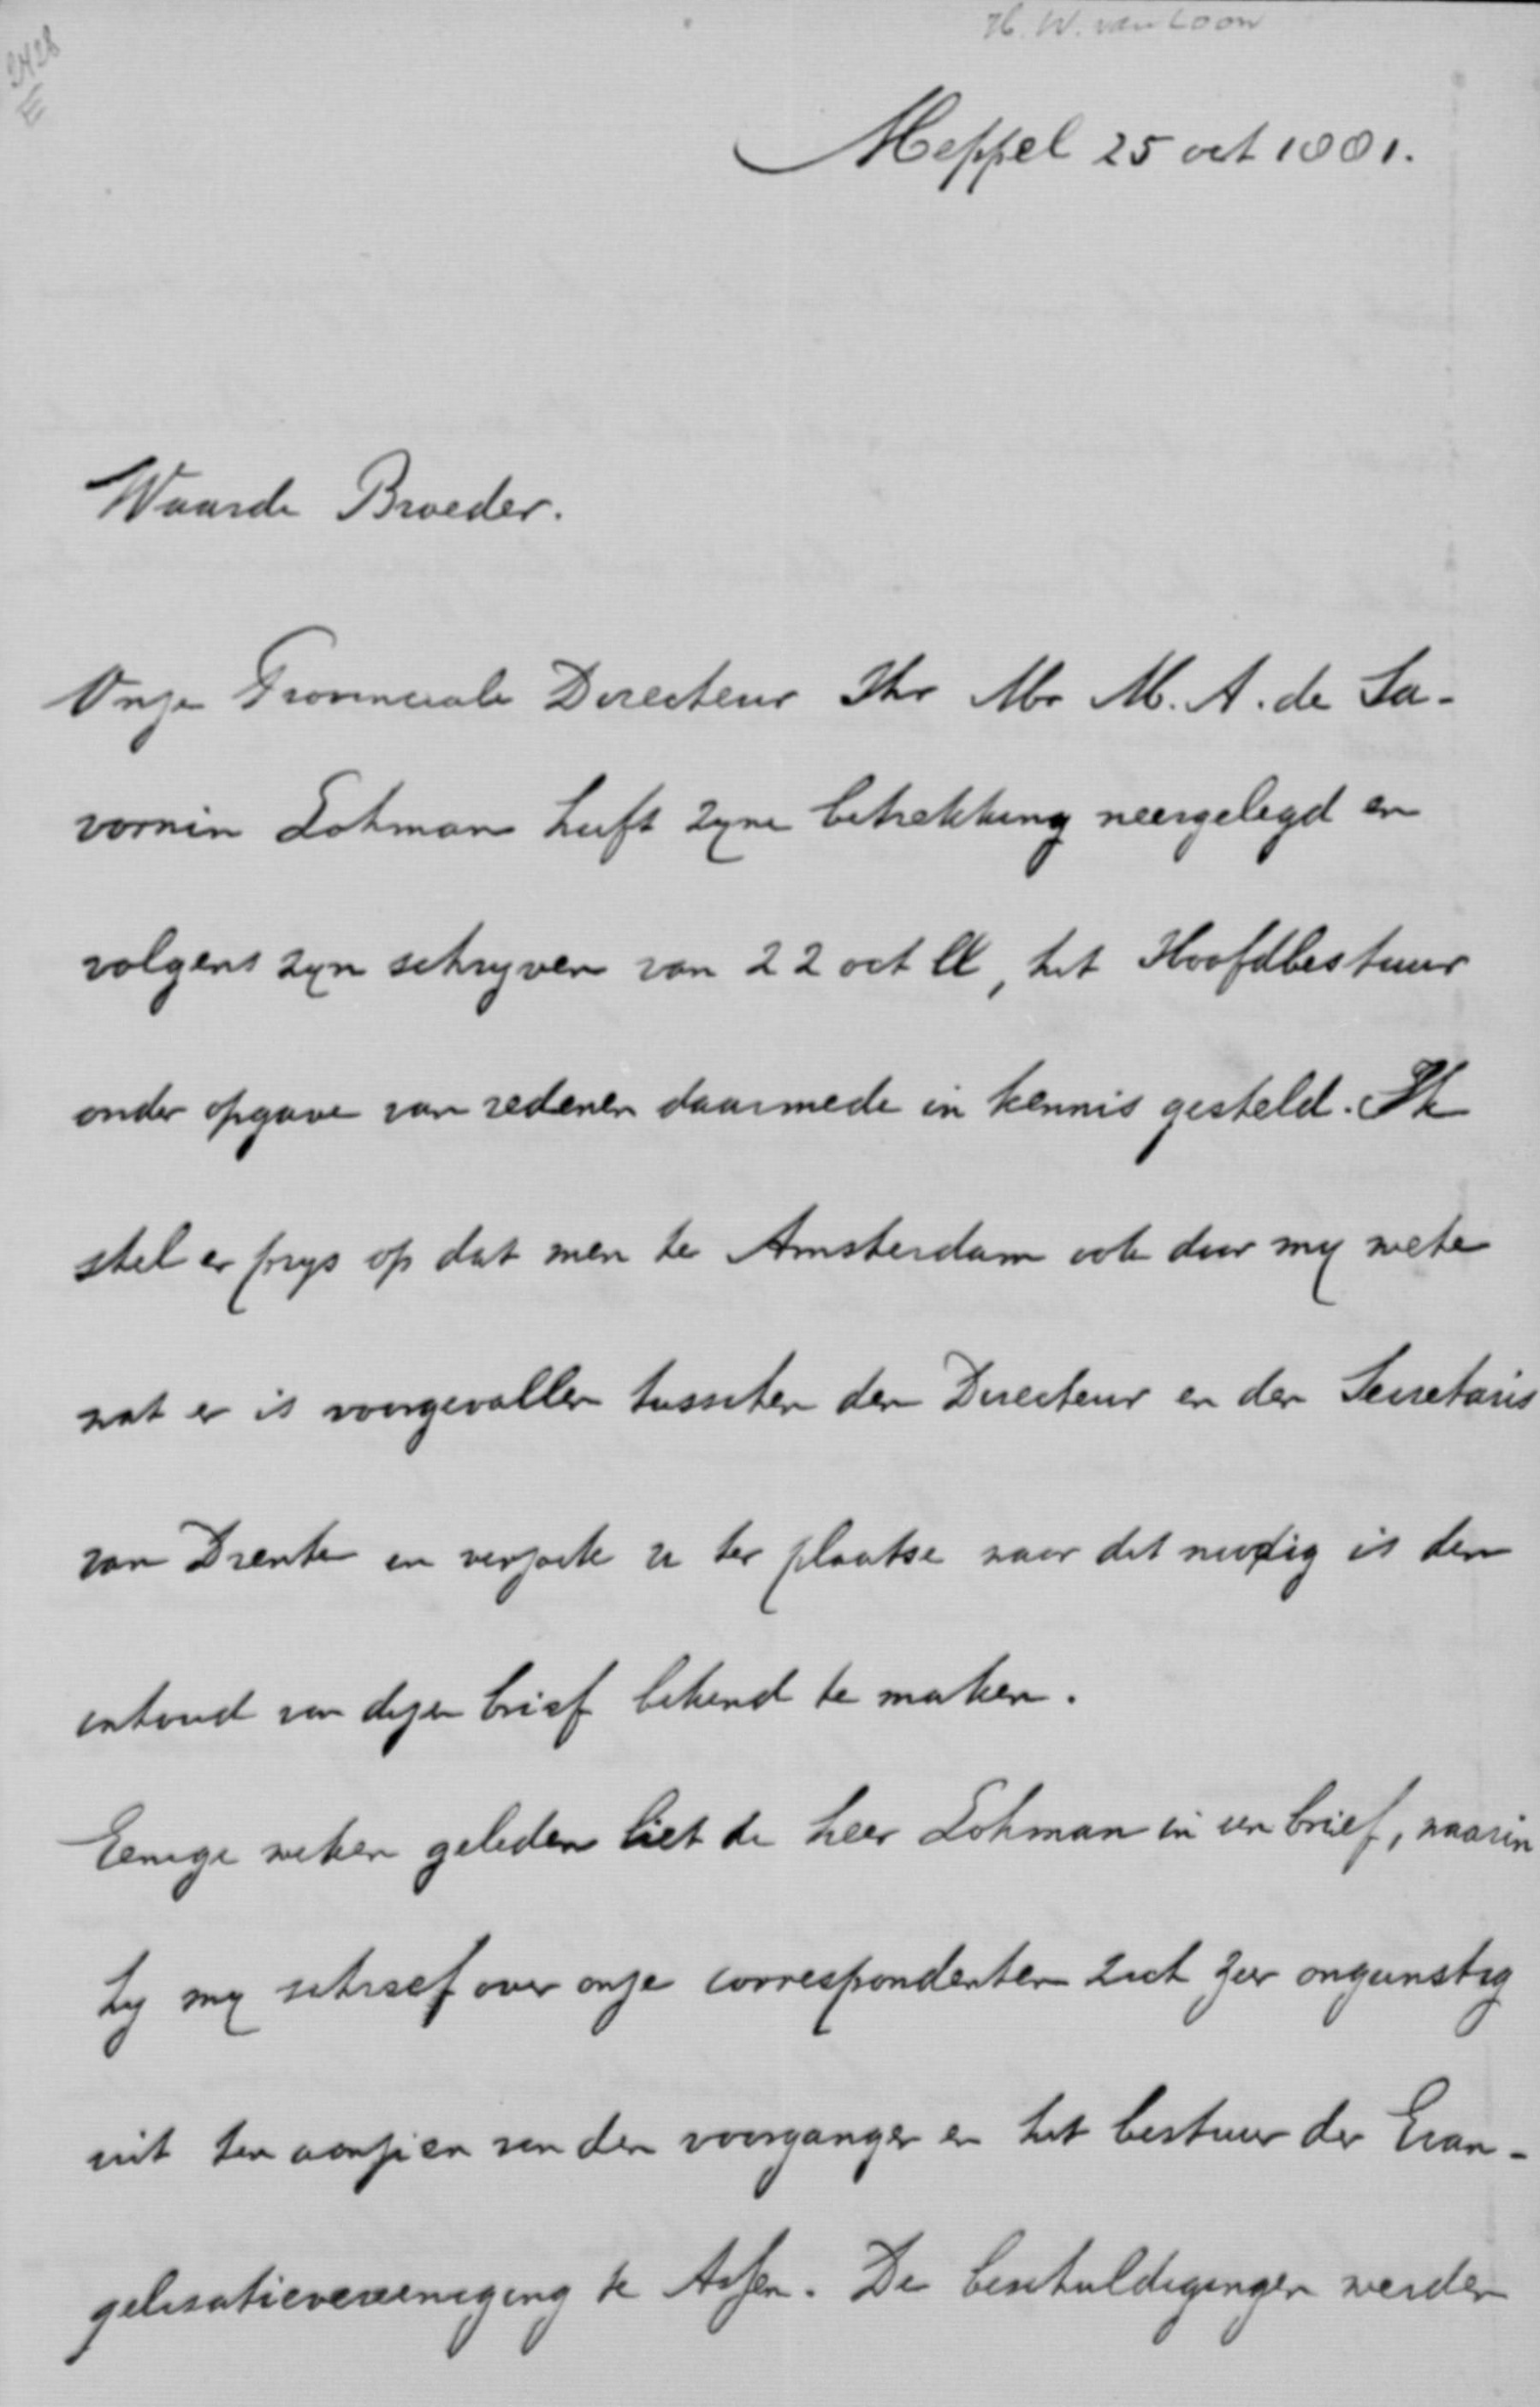 H. W. van Loon
2428
E
Meppel 25 oct 1881.
Waarde Broeder.
Onze Provinciale Directeur Jhr Mr M. A. de Sa-
vornin Lohman heeft zyne betrekking neergelegd en
volgens zyn schryven van 22 oct ll, het Hoofdbestuur
onder opgave van redenen daarmede in kennis gesteld. Ik
stel er prys op dat men te Amsterdam ook door my wete
wat er is voorgevallen tusschen den Directeur en den Secretaris
van Drente en verzoeke u ter plaatse waar dit noodig is den
inhoud van dezen brief bekend te maken.
Eenige weken geleden liet de heer Lohman in een brief, waarin
hy my schreef over onze correspondenten zich zeer ongunstig
uit ten aanzien van den voorganger en het bestuur der Evan-
gelisatievereeniging te Assen. De beschuldigingen werden